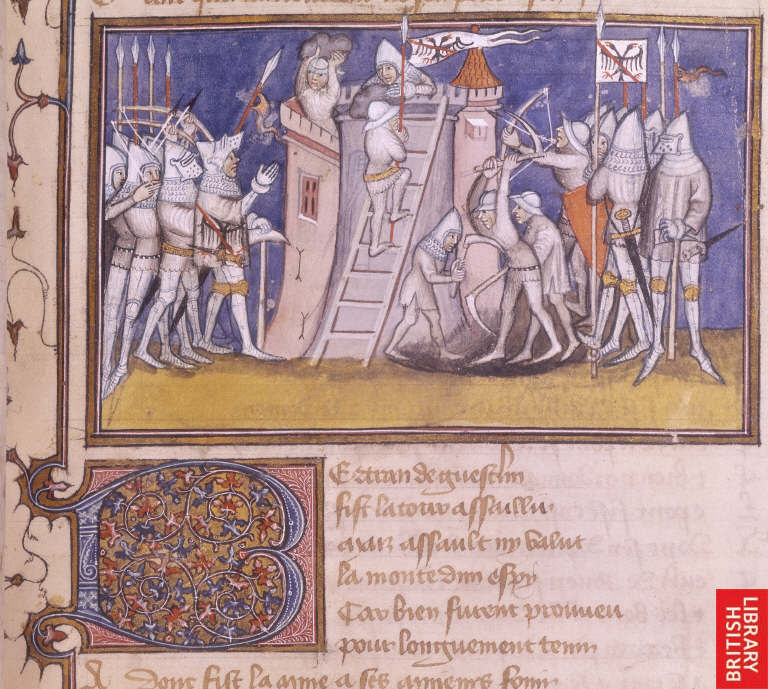 Bertran de guesclin
fist la tour assaillir
Maiz assault ny valut
la monte dun espy
Car bien furent pourveu
pour longuement tenir
A Donc fist la mine a ses mineurs fouir
BRITISH
LIBRARY